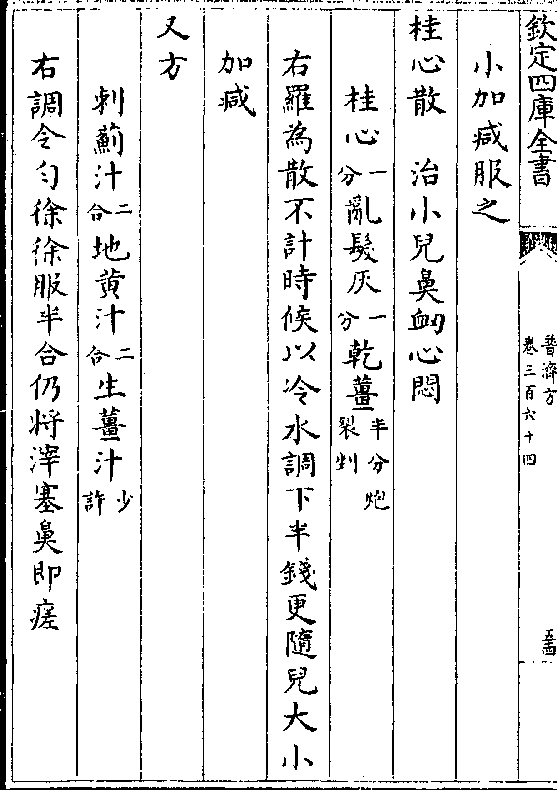 欽定四庫全書
普濟方
卷三百六十四
小加減服之
桂心散　治小兒鼻衂心悶
桂心一分亂髮灰一分乾薑半分炮裂剉
右羅為散不計時候以冷水調下半錢更隨兒大小
加减
又方
刺薊汁二合地黄汁二合生薑汁少許
右調令勻徐徐服半合仍將滓塞鼻即瘥